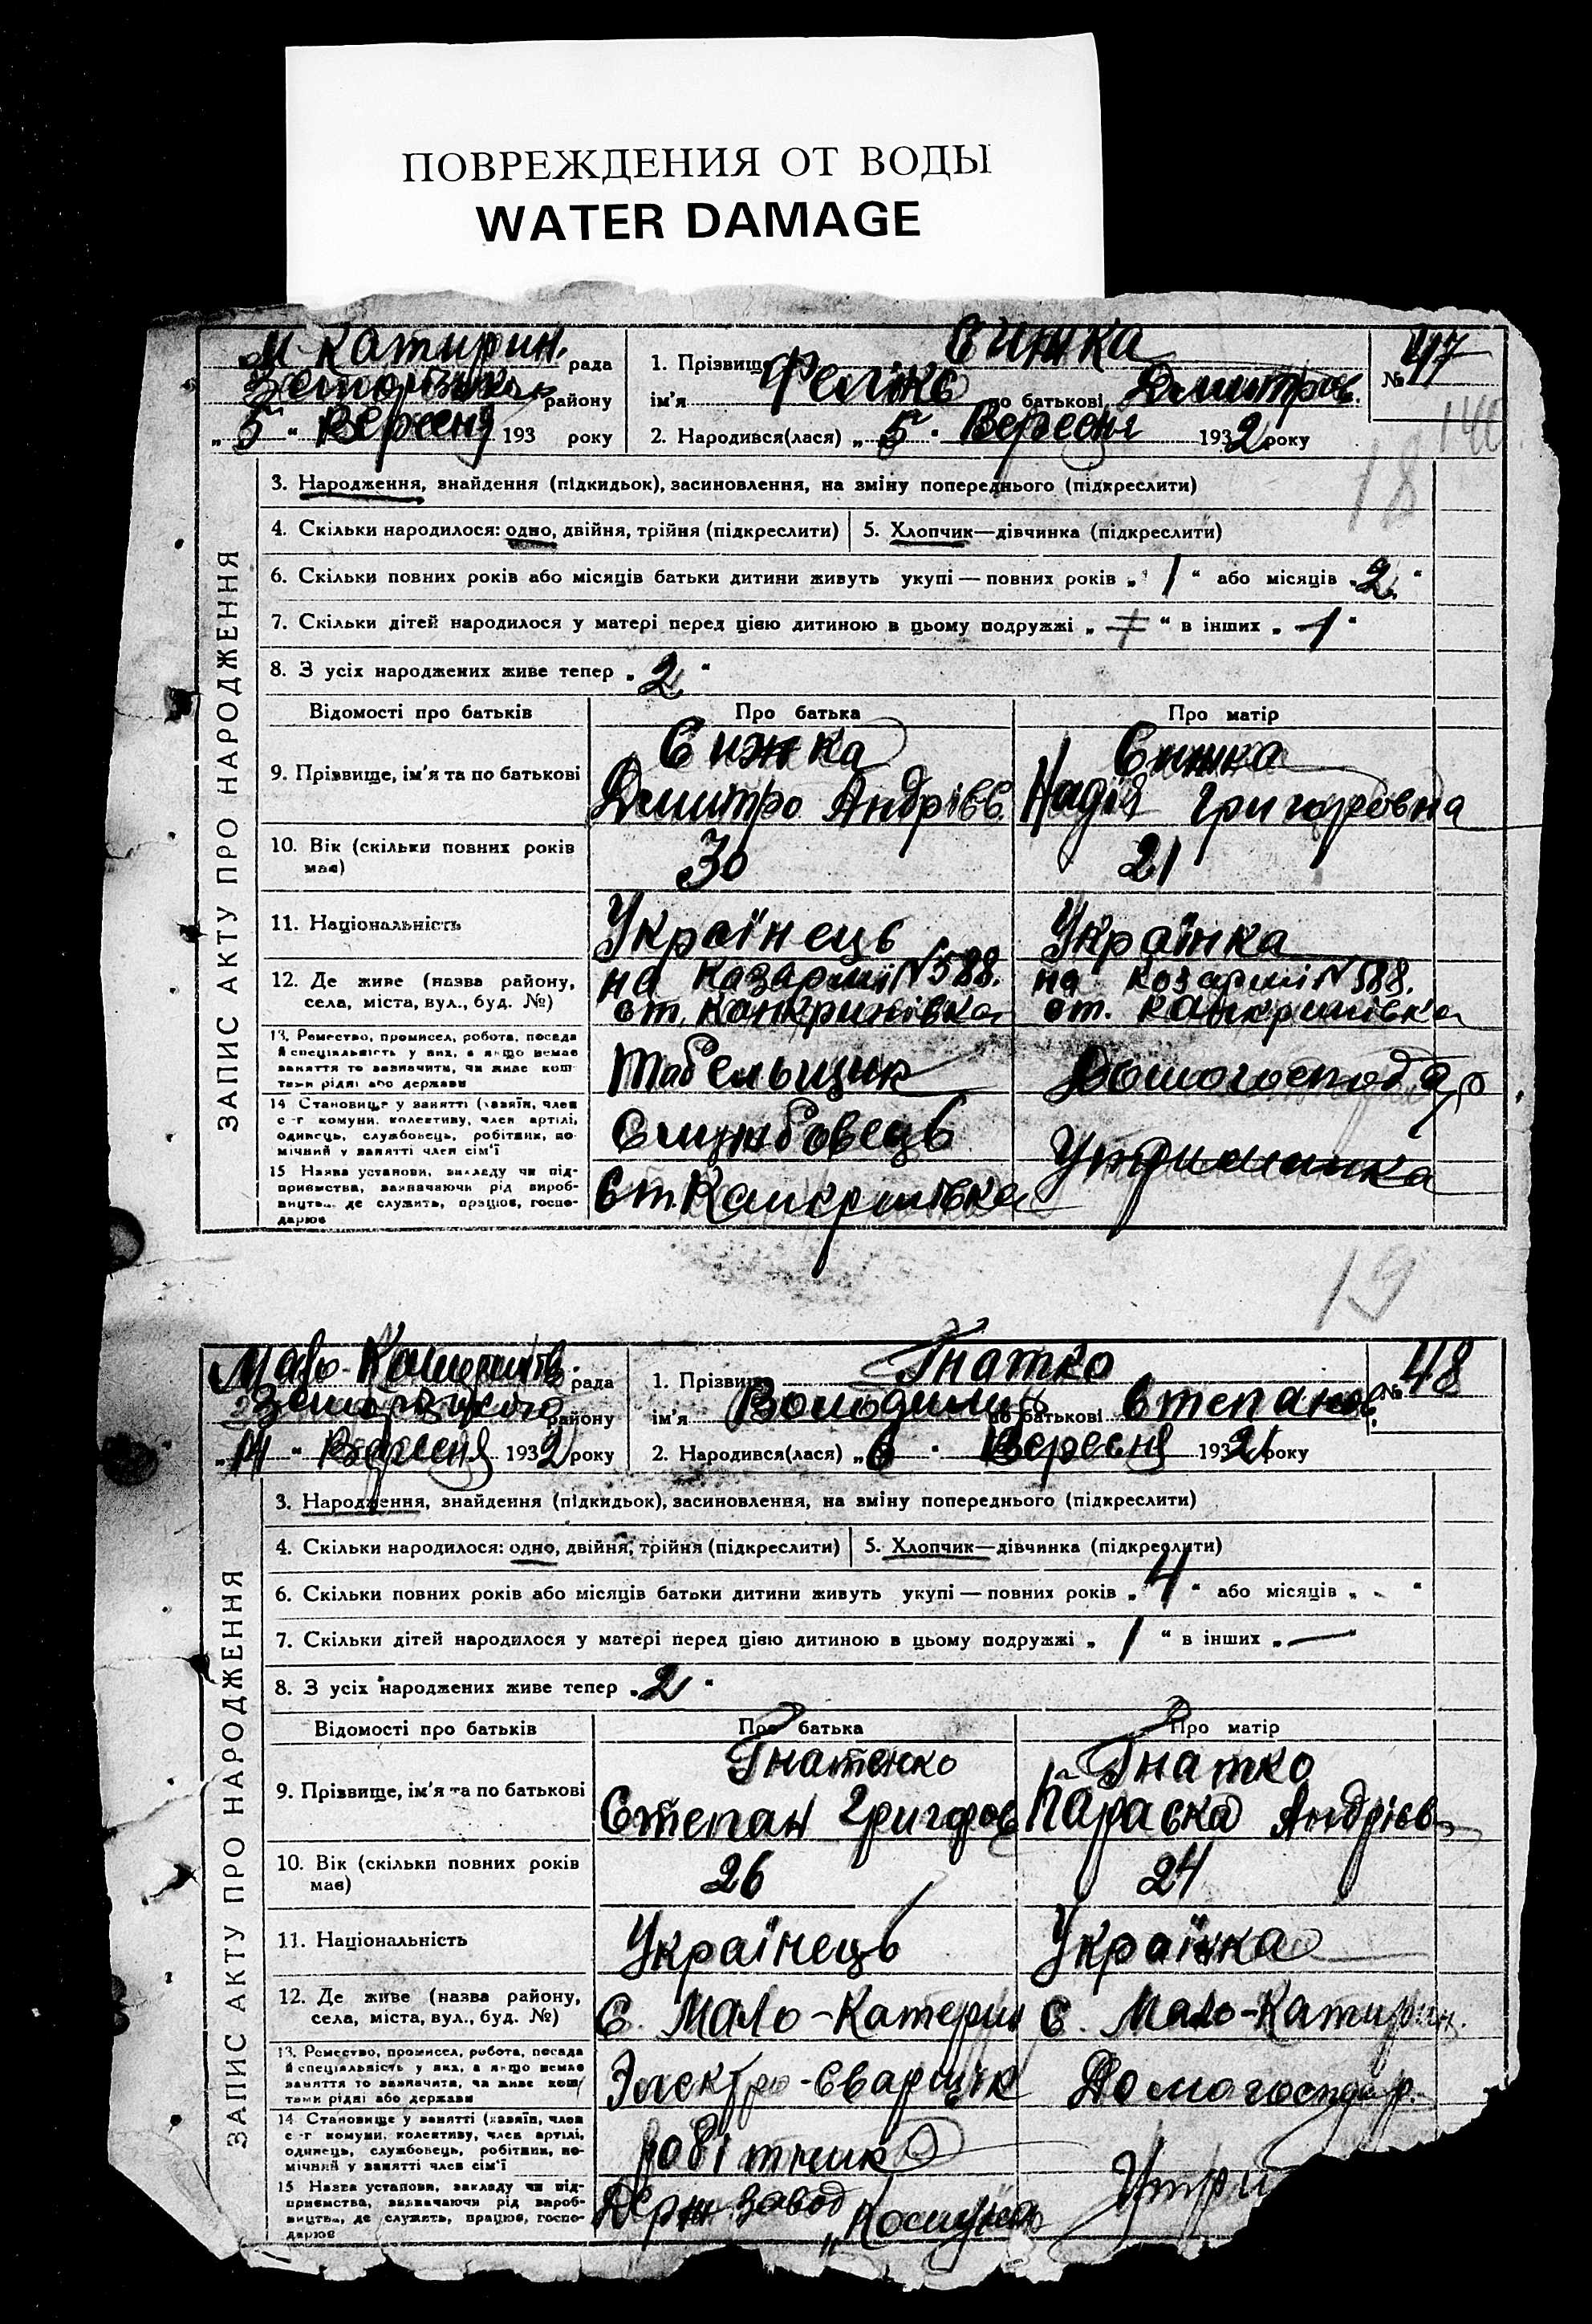 ПОВРЕЖДЕНИЯ ОТ ВОДЫ
WATER DAMAGE
ЗАПИС АКТУ ПРО НАРОДЖЕННЯ
М-Катирин. рада
району
„5“ Вересня 193 року
1. Прізвище Сижка
ім'я Фелікс по батькові Дмитров.
№ 47
140
2. Народився(лася) „5“ Вересня 1932 року
18
3. Народження, знайдення (підкидьок), засиновлення, на зміну попереднього (підкреслити)
4. Скільки народилося: одно, двійня, трійня (підкреслити)
5. Хлопчик—дівчинка (підкреслити)
6. Скільки повних років або місяців батьки дитини живуть укупі — повних років „1“ або місяців „2“
7. Скільки дітей народилося у матері перед цією дитиною в цьому подружжі „ “ в інших „1“
8. З усіх народжених живе тепер „2“
Відомості про батьків
Про батька
Про матір
9. Прізвище, ім'я та по батькові
Сижка
Дмитро Андрієв.
Сижка
Надія Григоровна
10. Вік (скільки повних років має)
30
21
11. Національність
Українець
Українка
12. Де живе (назва району, села, міста, вул., буд. №)
на казармі N 588.
ст. Канкринівка
на козармі N 588.
ст. Канкринівка
13. Ремество, промисел, робота, посада
й спеціяльність у них, а якщо немає
заняття то зазначити, чи живе кош-
тами рідні або держави
Табельщик
Домогосподар
14 Становище у занятті (хазяїн, член
с-г комуни, колективу, член артілі,
одинець, службовець, робітник, по-
мічний у занятті член сім'ї
Службовець
Утриманка
15 Назва установи, закладу чи під-
приємства, зазначаючи рід вироб-
ництва, де служить, працює, госпо-
дарює
Ст. Канкринівка
19
ЗАПИС АКТУ ПРО НАРОДЖЕННЯ
Мало-Катеринів. рада
Запорізького району
„14“ Вересня 1932 року
1. Прізвище Гнатко
ім'я Володимир по батькові Степанов.
№ 48
2. Народився(лася) „6“ Вересня 1932 року
3. Народження, знайдення (підкидьок), засиновлення, на зміну попереднього (підкреслити)
4. Скільки народилося: одно, двійня, трійня (підкреслити)
5. Хлопчик—дівчинка (підкреслити)
6. Скільки повних років або місяців батьки дитини живуть укупі — повних років „4“ або місяців „-“
7. Скільки дітей народилося у матері перед цією дитиною в цьому подружжі „1“ в інших „—“
8. З усіх народжених живе тепер „2“
Відомості про батьків
Про батька
Про матір
9. Прізвище, ім'я та по батькові
Гнатенко
Степан Григоров
Гнатко
Параска Андрієв
10. Вік (скільки повних років має)
26
24
11. Національність
Українець
Українка
12. Де живе (назва району, села, міста, вул., буд. №)
С. Мало-Катерин
С. Мало-Катирин.
13. Ремество, промисел, робота, посада
й спеціяльність у них, а якщо немає
заняття то зазначити, чи живе кош-
тами рідні або держави
Электро-Сварщік
Домогосподар.
14 Становище у занятті (хазяїн, член
с-г комуни, колективу, член артілі,
одинець, службовець, робітник, по-
мічний у занятті член сім'ї
робітник
Утри
15 Назва установи, закладу чи під-
приємства, зазначаючи рід вироб-
ництва, де служить, працює, госпо-
дарює
Держ. завод
„Комунар